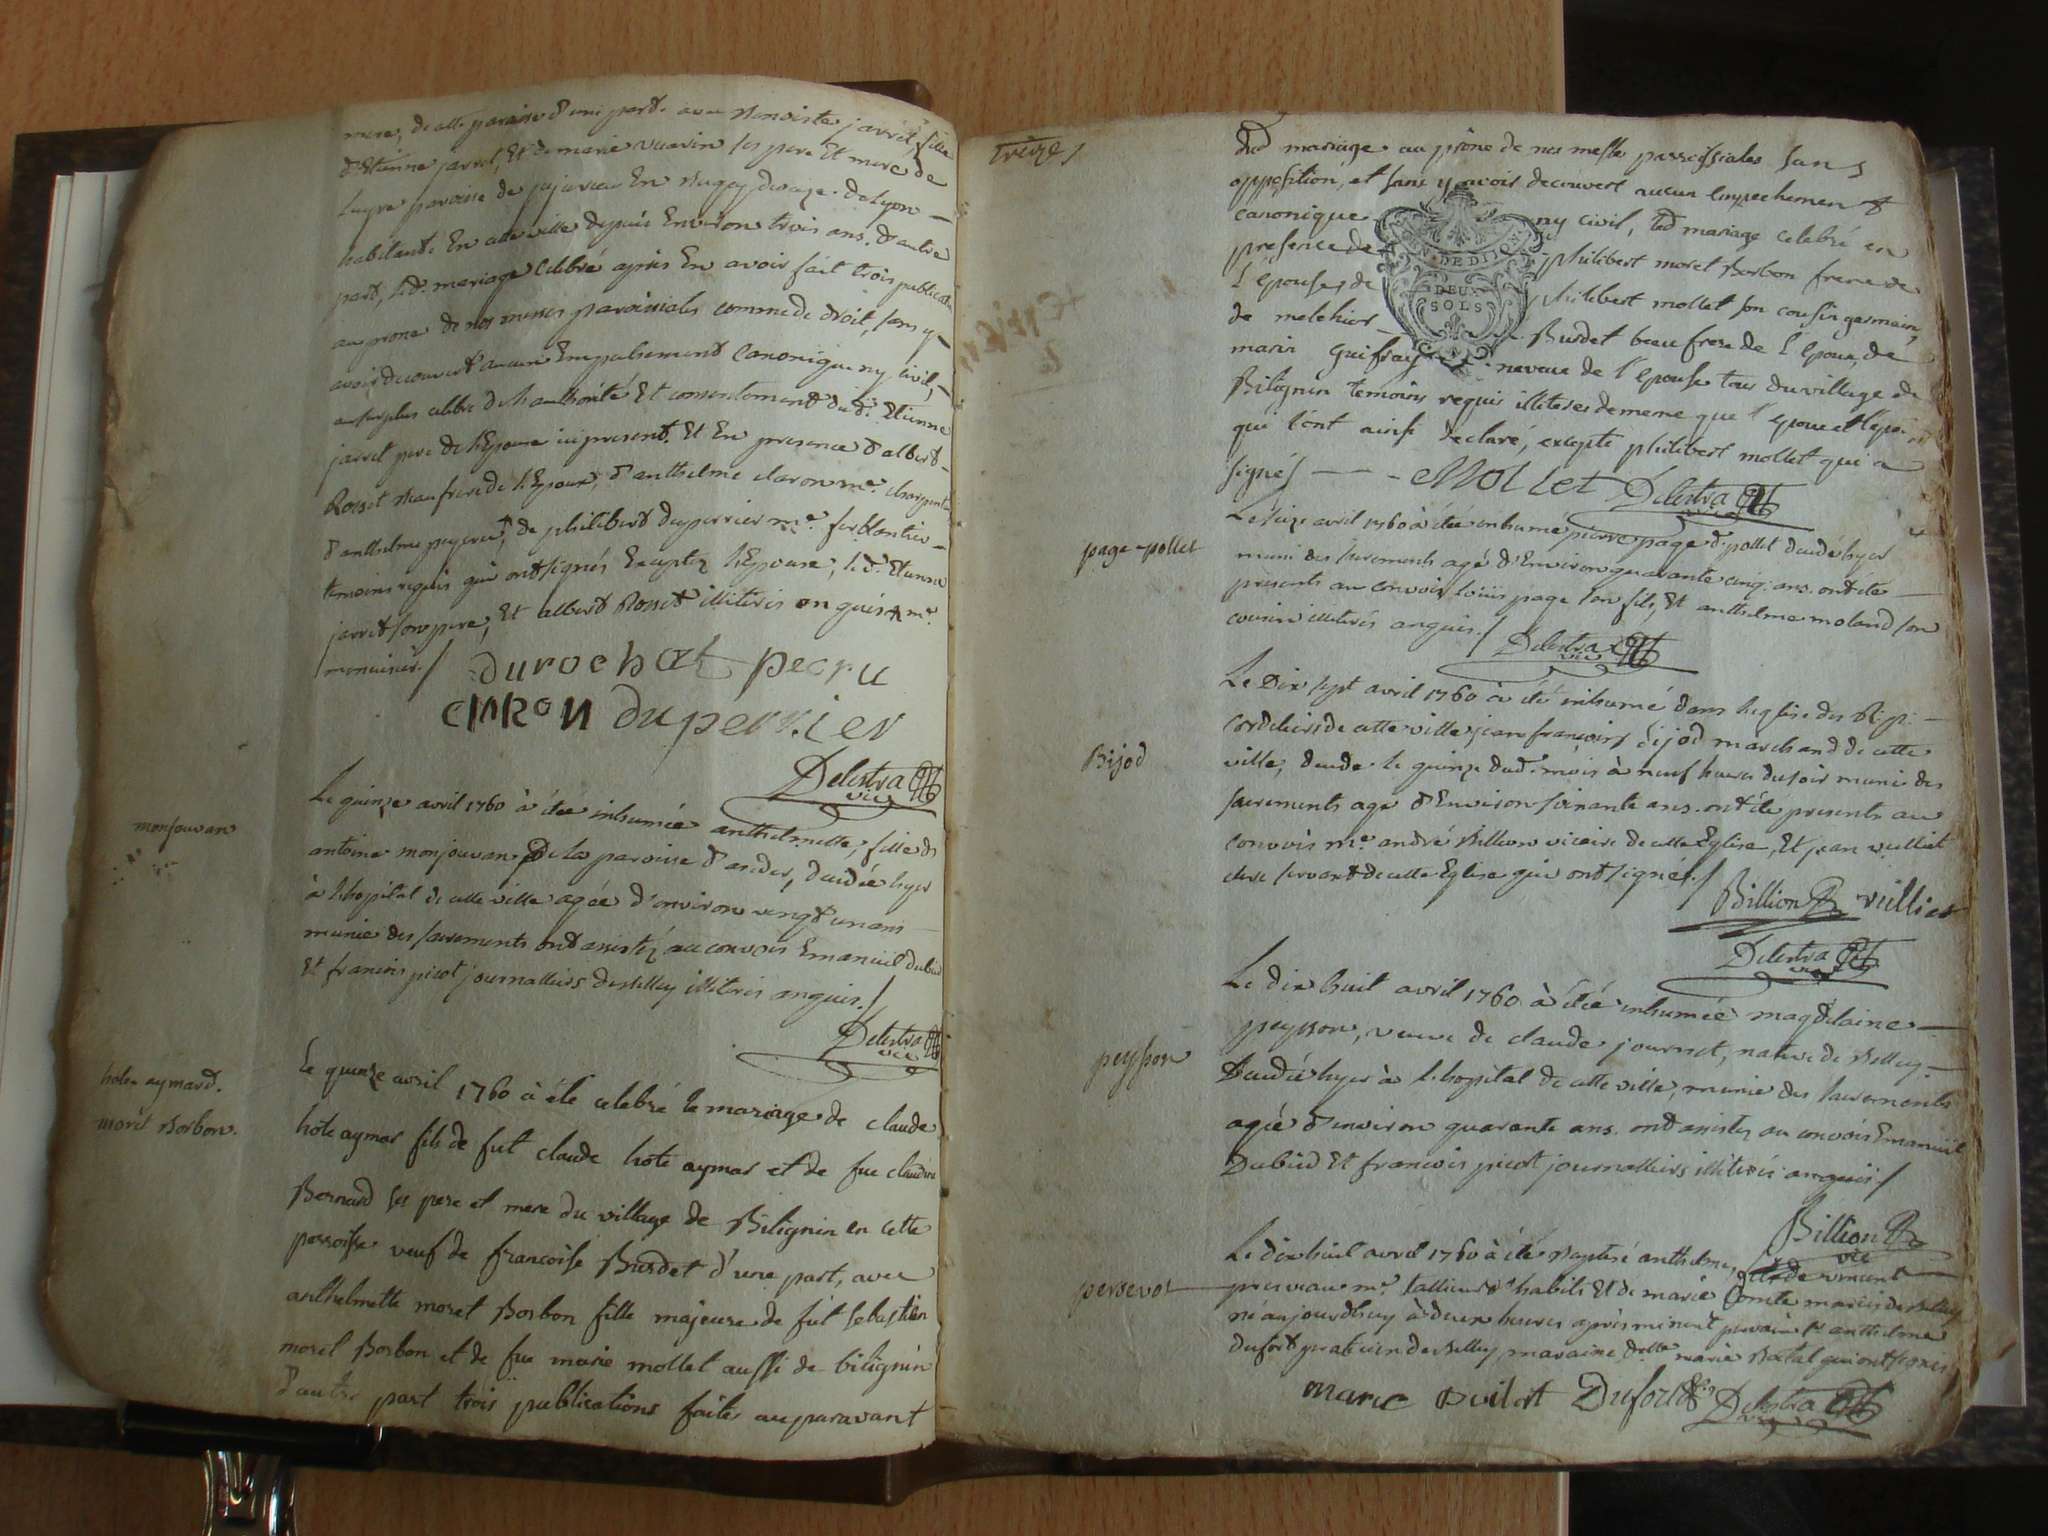 mere, de cette paroisse d'une part. avec Benoiste jarrit, fille
d'Etienne jarrit, Et de marie vuarin ses pere Et mere de
paroisse de En Bugey, de Lyon
habitant. En cette ville depuis Environ trois ans. d'autre
part, led. mariage Celebré après En avoir fait trois publications
au prone de nos messes paroissiales comme de droit, sans y
avoir decouvert aucun Empechement Canonique ny Civil,
au surplus celebré de l'authorité Et consentement dud. Etienne
jarrit pere de l'Epouse ici present. Et En presence d'albert
Rosset Beaufrere de l'Epoux, d'anthelme claron me. charpentier
d'anthelme peyeru, de philibert duperrier me. ferblantier
temoins requis qui ont signés Excepté l'Epouse, led. Etienne
jarrit son pere, Et albert Rosset illiteris enquis me.
menuisier./
durochat pecru
CLARON duperrier
Delestra
vic
Le quinze avril 1760 à étée inhumée anthelmette, fille de
monjouvan
antoine monjouvan De la paroisse d'andes, decedée hyer
à l'hopital de cette ville agée d'environ vingt un ans
munie des sacrements ont assistez au convois Emanuel dubied
Et francois picot journalliers de Belley illiteris enquis./
Delestra
vic
Le quinze avril 1760 à été celebré le mariage de claude
hote aymard.
hote aymar fils de fut claude hote aymar et de fue claudine
moret Borbon.
Bernard ses pere et mere du village de Bilignin en cette
parroisse veuf de francoise Burdet d'une part, avec
anthelmette moret Borbon fille majeure de fut sebastien
moret Borbon et de fue marie mollet aussi de bilignin
d'autre part trois publications faites auparavant
treize/
dud mariage au prône de nos messes parroissiales sans
opposition, et sans y avoir decouvert aucun Empechement
canonique ny civil, led mariage celebré en
presence de philibert moret Borbon frere de
l'Epouse, de philibert mollet son cousin germain,
de melchior Burdet beau frere de l'Epoux, de
marin Guifray neveux de l'epouse tous du village de
Bilignin temoins requis illiteres de meme que l'epoux et l'epouse
qui l'ont ainsi declaré, excepté philibert mollet qui a
signé/ Mollet Delestra
DE DIJON
DEUX
SOLS
Le seize avril 1760 à été inhumé pierre page d. pollet decedé hyer
page-pollet
muni des sacrements agé d'Environ quarante cinq ans. ont été
presents au convoir Louis page son fils, Et anthelme moland son
cousin illiteris enquis./ Delestra
vic
Le Dix sept avril 1760 à été inhumé dans l'eglise des R.p.
Cordeliers de cette ville jean francois Bijod marchand de cette
Bijod
ville, decede le quinze dud. mois à neuf heures du soir muni des
sacrements agé d'Environ soixante ans. ont été presents au
convois me. andré Billion vicaire de cette Eglise, Et jean vuilliet
clerc servant de cette Eglise qui ont signés./
Billion vuilliet
Delestra
vic
Le dix huit avril 1760 à étée inhumée magdelaine
peysson, veuve de claude journet, native de Belley
peysson
Decedée hyer à l'hopital de cette ville, munie des sacrements
agée d'environ quarante ans. ont assistez au convois Emanuel
Dubied Et francois picot journalliers illiteris enquis/
Billion
vic
Le dix huit avril 1760 à été Baptisé anthelme, fils de vincent
persevot
me. tallieur d'habits Et de marie Comte mariés de Belley
né aujourdhuy à deux heures après minuit parain sr. anthelme
dufort praticien de Belley maraine dlle marie Batal qui ont signés
marie Dufort Delestra
vic